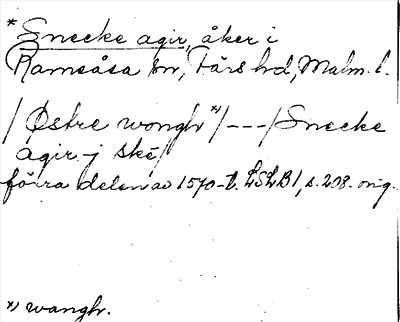 * Snecke agir, åker i
Ramsåsa sn, Färs hd, Malm. l.
/ Østre wongh *)/---/ Snecke
agir j ske/
förra delen av 1570-t. LSLB1, s. 208. orig.
*) wangh.